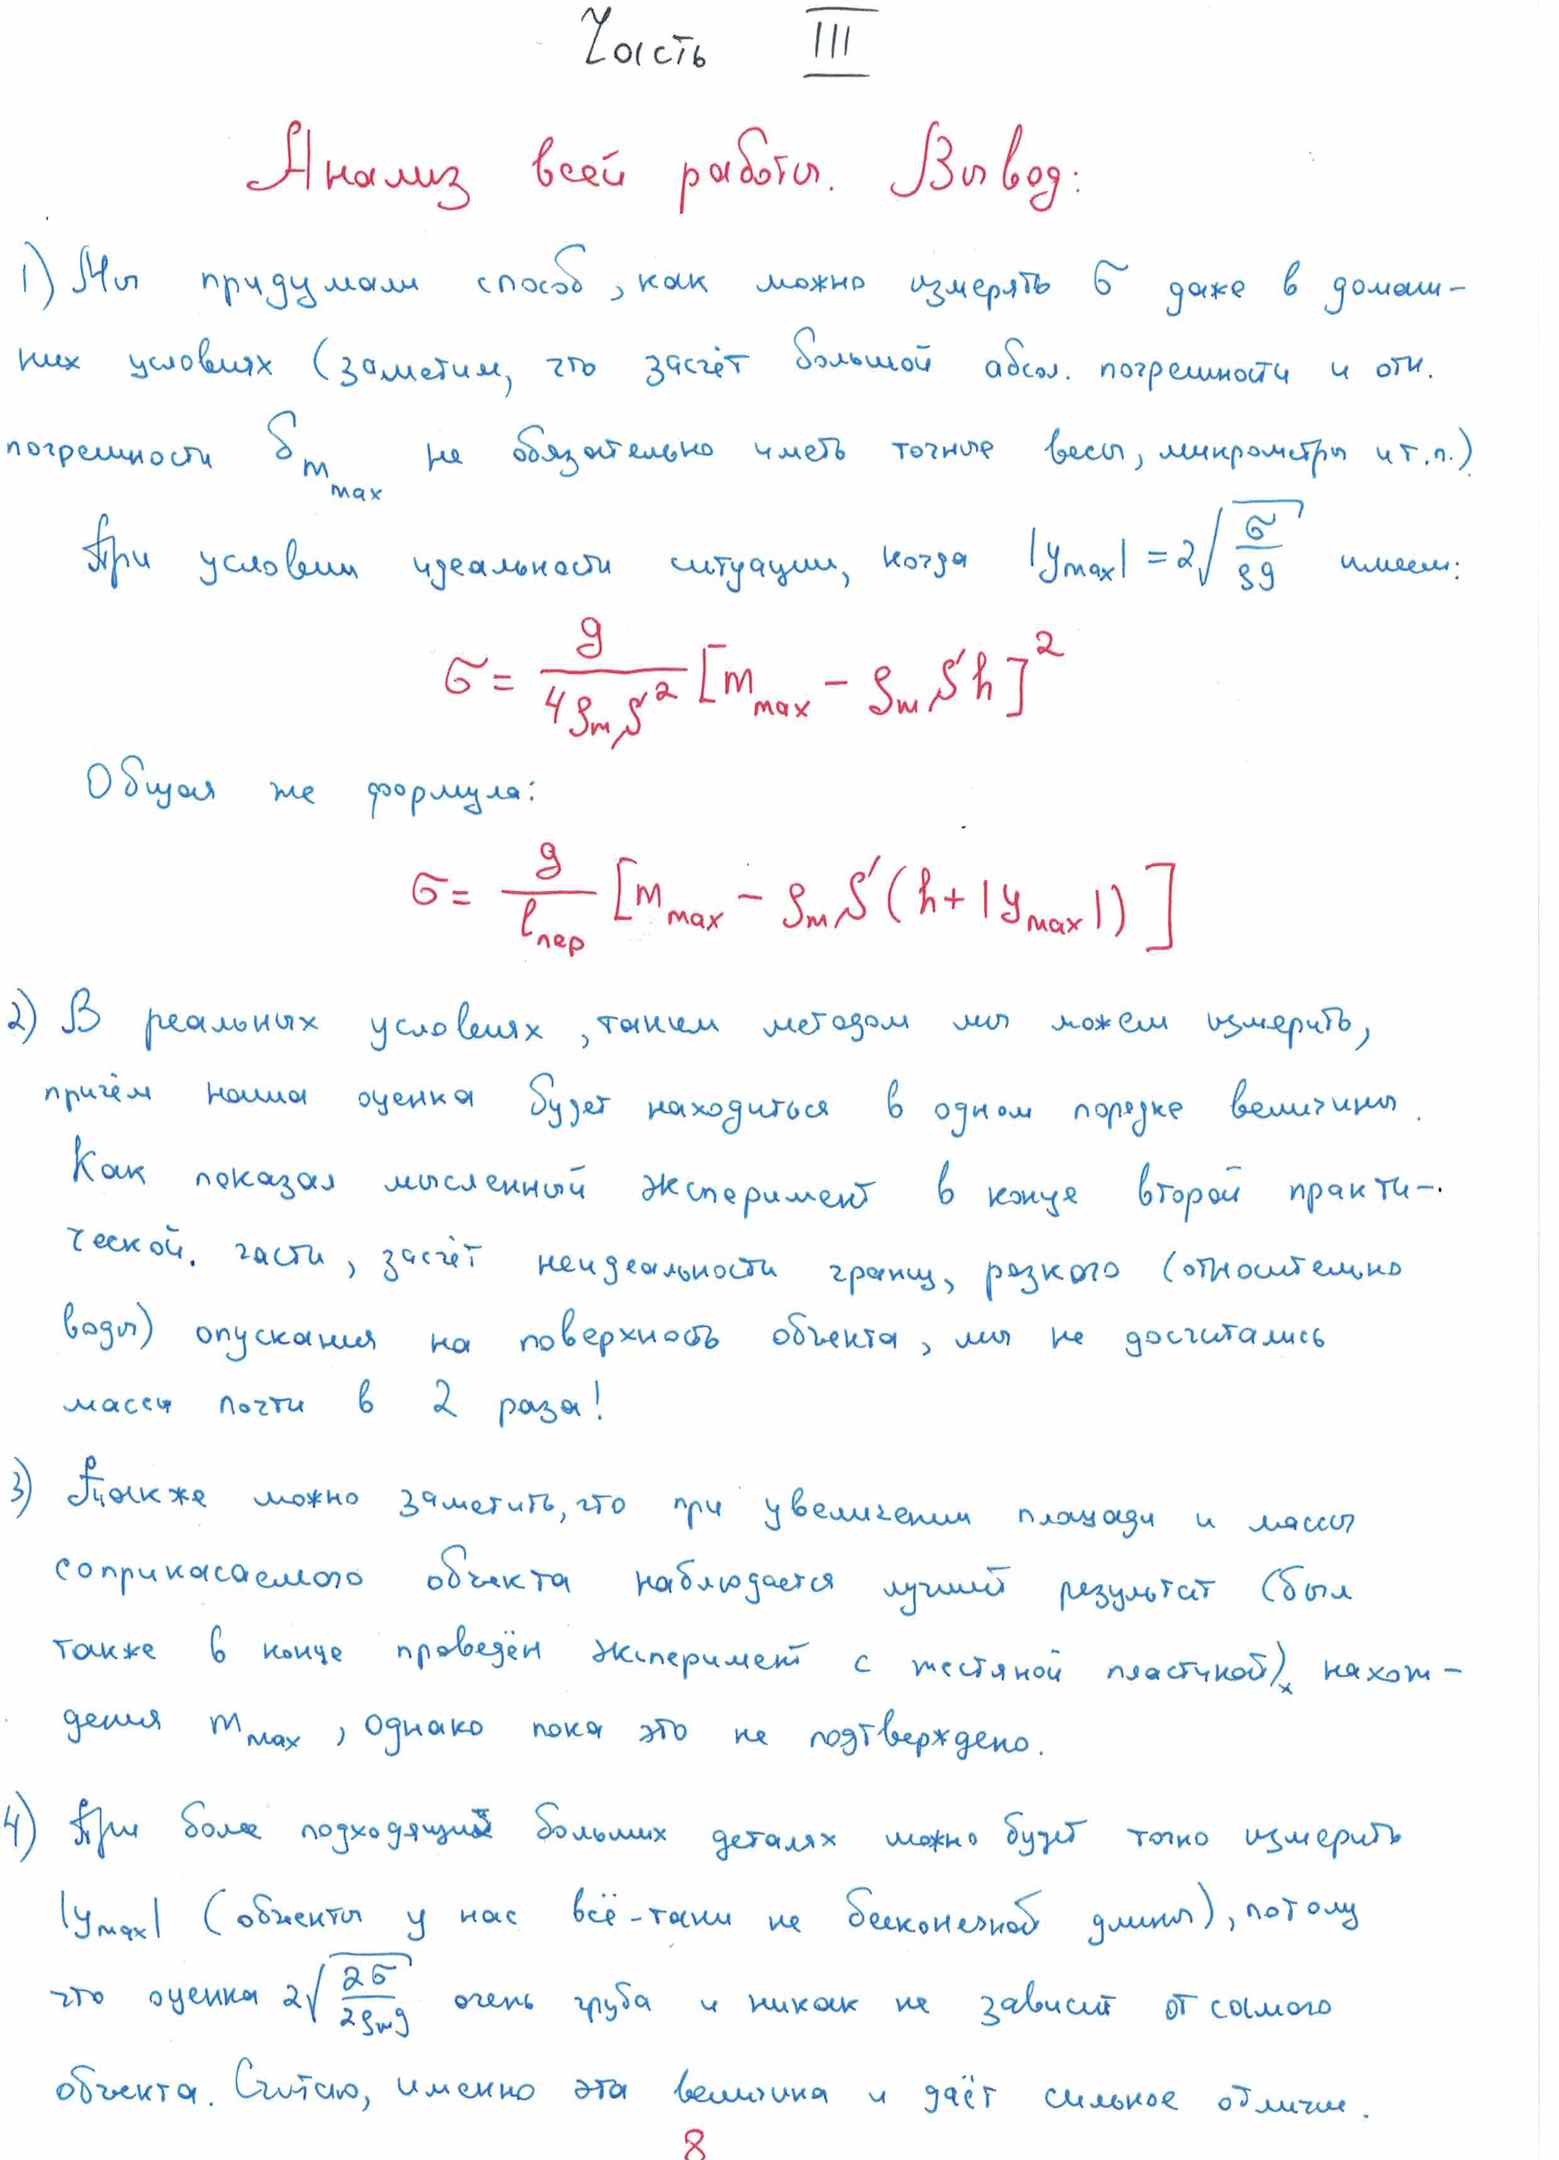 Часть III
Анализ всей работы. Вывод:
1) Мы придумали способ, как можно измерять σ даже в домаш-
них условиях (заметим, что засчёт большой абсол. погрешности и отн.
погрешности δ_{m_{max}} не обязательно иметь точные весы, микрометры и т.п.)
При условии идеальности ситуации, когда |y_{max}| = 2√(σ/ρg) имеем:
σ = g/(4ρ_m S²) [m_{max} - ρ_m S h]²
Общая же формула:
σ = g/l_{пер} [m_{max} - ρ_m S (h + |y_{max}|)]
2) В реальных условиях, таким методом мы можем измерить,
причём наша оценка будет находиться в одном порядке величины.
Как показал мысленный эксперимент в конце второй практи-
ческой. части, засчёт неидеальности границ, резкого (относительно
воды) опускания на поверхность объекта, мы не досчитались
массы почти в 2 раза!
3) Также можно заметить, что при увеличении площади и массы
соприкасаемого объекта наблюдается лучший результат (был
также в конце проведён эксперимент с жестяной пластикой) нахож-
дения m_{max}, однако пока это не подтверждено.
4) При более подходящих больших деталях можно будет точно измерить
|y_{max}| (объекты у нас всё-таки не бесконечной длины), потому
что оценка 2√(2σ/2ρ_m g) очень груба и никак не зависит от самого
объекта. Считаю, именно эта величина и даёт сильное отличие.
8